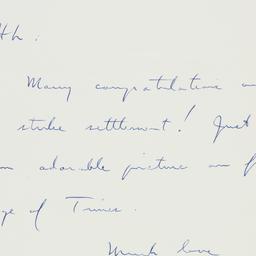 Many congratulations
strike settlement! Just
adorable picture on
of Times.
Much love